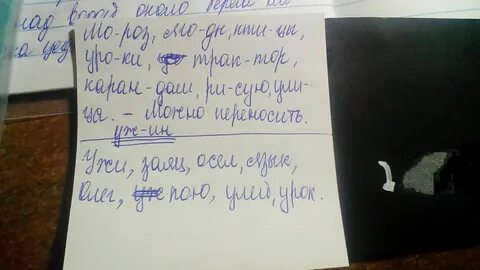 лад второй около перей
Мо-роз, мо-ди, пти-цы,
уро-ки, трак-тор,
каран-даш, ри-сую, ули-
цы. – Можно переносить.
уж-ин
Ужи, заяц, осел, язык,
Олег, пою, улей, урок.